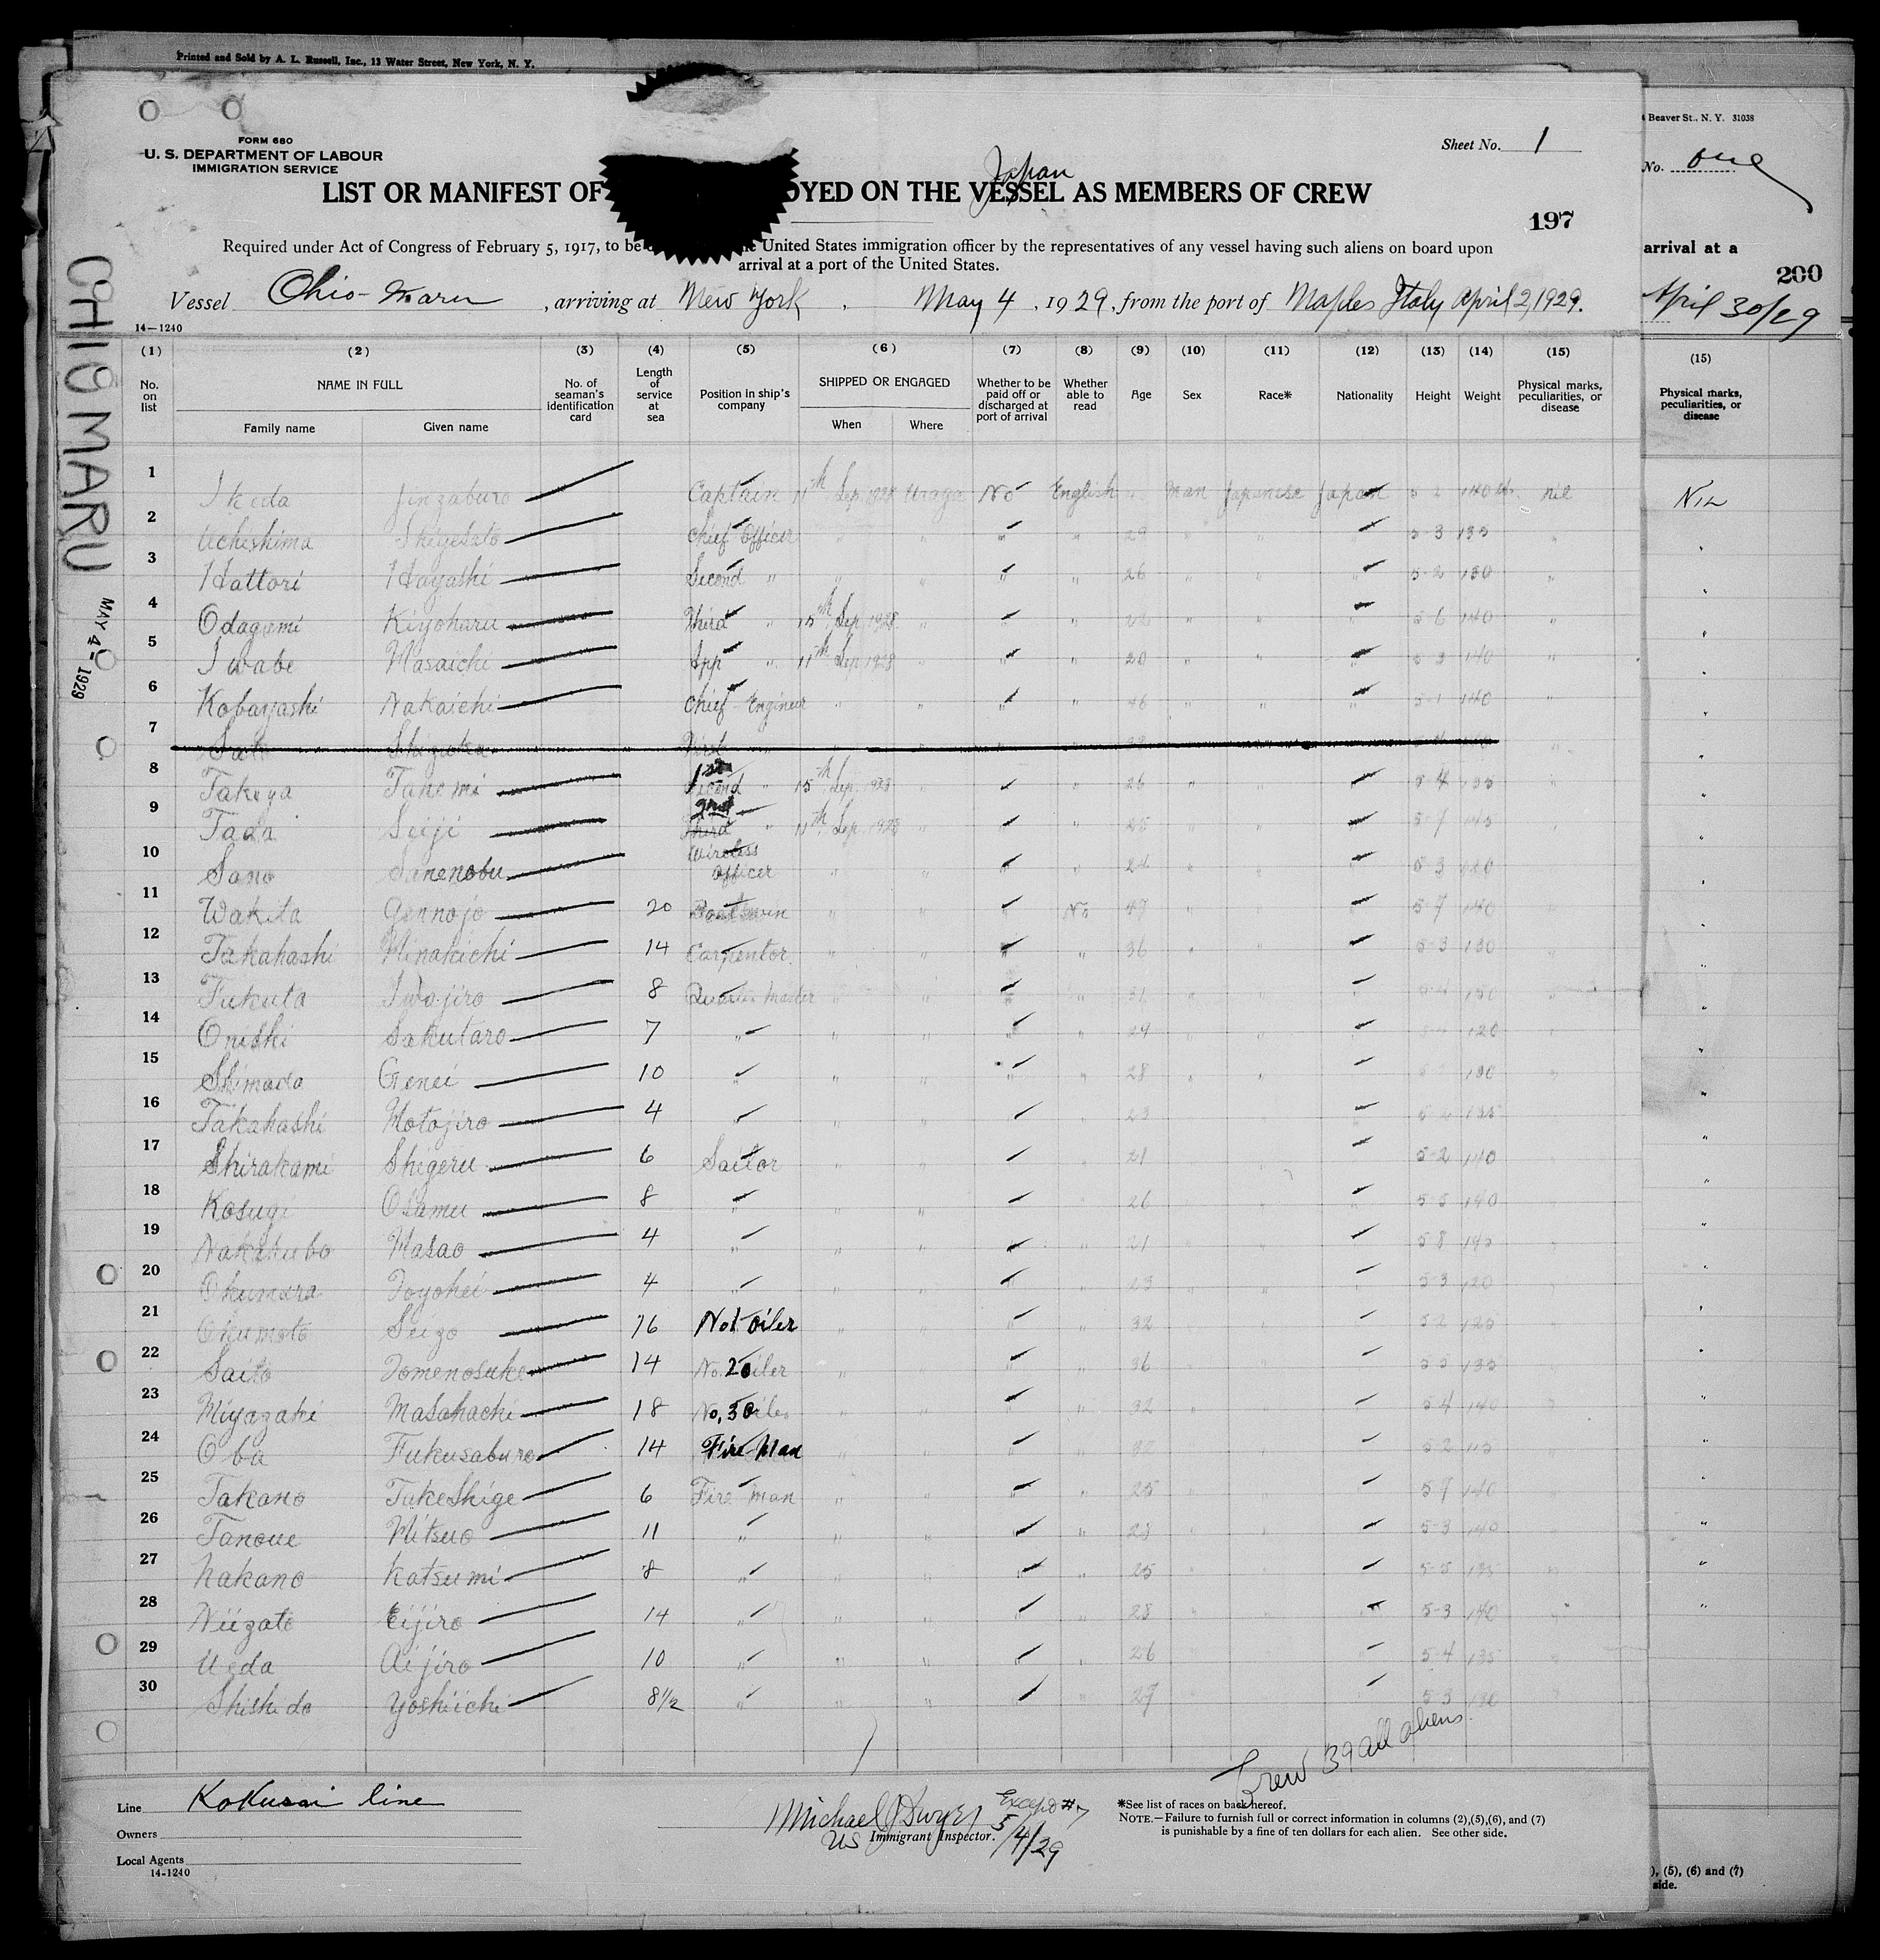 Printed and Sold by A. L. Russell, Inc., 13 Water Street, New York, N. Y.
Beaver St., N. Y. 31038
FORM 680
U. S. DEPARTMENT OF LABOUR
IMMIGRATION SERVICE
Sheet No. 1
No. one
Japan
LIST OR MANIFEST OF OYED ON THE VESSEL AS MEMBERS OF CREW
197
Required under Act of Congress of February 5, 1917, to be United States immigration officer by the representatives of any vessel having such aliens on board upon
arrival at a port of the United States.
arrival at a
200
Vessel Ohio Maru, arriving at New York, May 4, 1929, from the port of Naples Italy April 2, 1929.
April 30/29
14—1240
OHIO MARU
MAY 4 - 1929
(1) (2) (3) (4) (5) (6) (7) (8) (9) (10) (11) (12) (13) (14) (15)
(15)
No. on list
NAME IN FULL
Family name Given name
No. of seaman's identification card
Length of service at sea
Position in ship's company
SHIPPED OR ENGAGED
When Where
Whether to be paid off or discharged at port of arrival
Whether able to read
Age Sex Race* Nationality Height Weight
Physical marks, peculiarities, or disease
Physical marks, peculiarities, or disease
1 Ikeda Jinzaburo Captain 11th Sep. 1928 Uraga No English Man Japanese Japan 5-2 140 nil
Nil
2 Ucheshima Shigesato Chief Officer " " " " 29 " " " 5-3 135 "
3 Hattori Hayashi Second " " " " " 26 " " " 5-2 130 "
4 Odagami Kiyoharu Third " 15th Sep. 1928 " " " " " " 5-6 140 "
5 Iwabe Masaichi App " 11th Sep. 1928 " " " 20 " " " 5-3 140 "
6 Kobayashi Nakaichi Chief Engineer " " " " 46 " " " 5-1 140 "
7 Sato Shizuka First "
8 Takeya Takemi 1st Second " 15th Sep. 1928 " " 26 " " 5-4 135 "
9 Tada Seiji 2nd Third " 11th Sep. 1928 " " " 25 " " " 5-7 145 "
10 Sano Sanenobu Wireless Officer " " " " 24 " " " 5-3 120
11 Wakita Gennojo 20 Boatswain " " " No 47 " " 5-7 140
12 Takahashi Minakichi 14 Carpentor " " " 36 " " 5-3 130
13 Fukuta Iwajiro 8 Quarter Master " " " 31 5-4 150
14 Onishi Sakutaro 7 " " " 24 120
15 Shimada Genei 10 " " " " 28 " " 130
16 Takahashi Motojiro 4 " " " 23 5-2 135
17 Shirakami Shigeru 6 Sailor " " 21 5-2 140
18 Kosugi Osamu 8 " " " 26 5-5 140
19 Nakakubo Masao 4 " " " " 21 5-8 145
20 Okumura Toyohei 4 " " " " 23 5-3 120
21 Okumoto Seizo 16 No1 Oiler " 32 5-2 125
22 Saito Tomenosuke 14 No.2 Oiler " 36 5-5 135
23 Miyazaki Masahachi 18 No,3 Oiler " " " 32 5-4 140
24 Oba Fukusaburo 14 Fire Man " " " 5-2 115
25 Takano TakeShige 6 Fire man " " " " 25 5-7 140
26 Tanoue Mitsuo 11 " " " " " 23 5-3 140
27 Nakano Katsumi 8 " " " " " 25 5-5 135
28 Niizato Eijiro 14 " " " " " 28 5-3 140
29 Ueda Aijiro 10 " " " " " 26 5-4 135
30 Shishido Yoshiichi 8½ " " " " 27 5-3 130
Crew 39 all aliens
Line Kokusai line
Owners
Local Agents
14-1240
Michael J Dwyer
US Immigrant Inspector.
Except #7
5/4/29
*See list of races on back hereof.
NOTE.—Failure to furnish full or correct information in columns (2),(5),(6), and (7)
is punishable by a fine of ten dollars for each alien. See other side.
), (5), (6) and (7)
side.